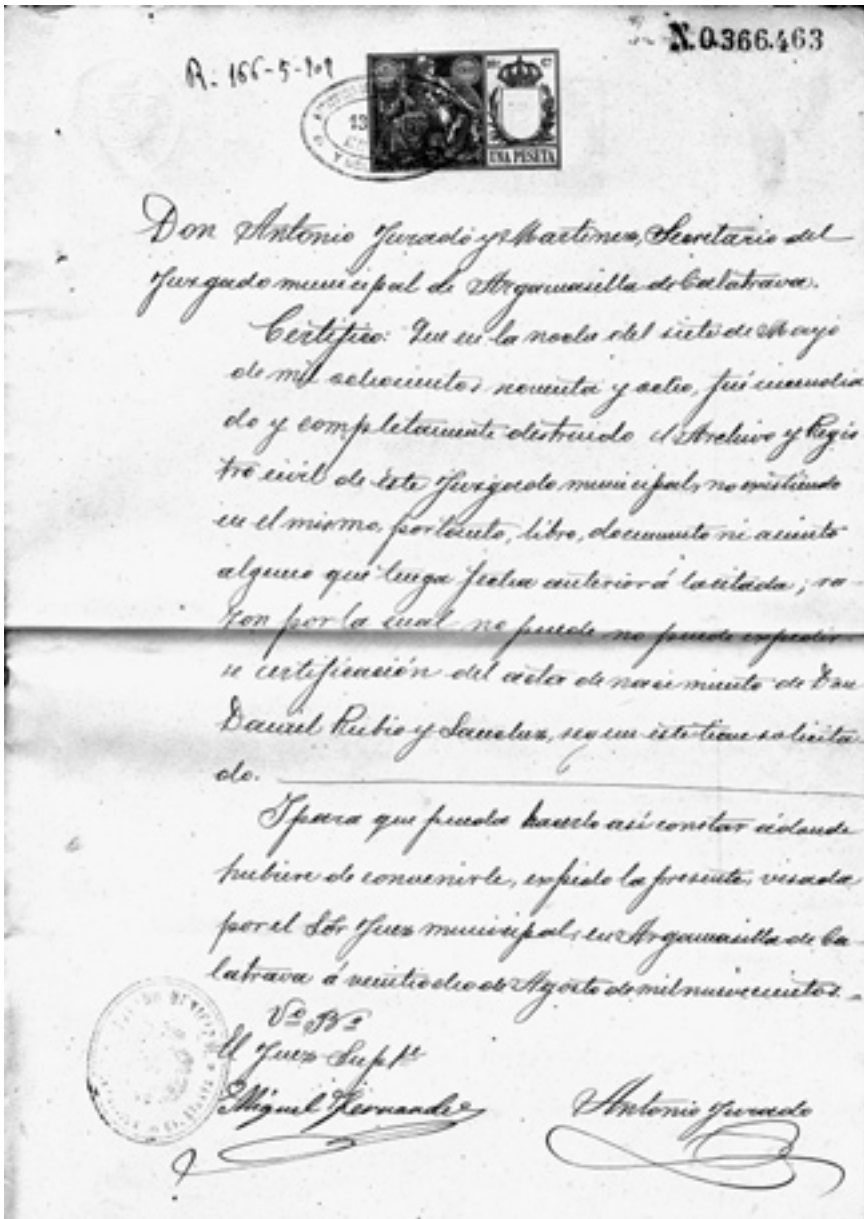 N.0.366.463
R. 166-5-909
13
UNA PESETA
Don Antonio Jurado y Martinez, Secretario del
Juzgado municipal de Argamasilla de Calatrava.
Certifico: Que en la noche del siete de Mayo
de mil ochocientos noventa y ocho, fué incendia
do y completamente destruido el Archivo y Regis
tro civil de este Juzgado municipal, no existiendo
en el mismo, por tanto, libro, documento ni asiento
alguno que tenga fecha anterior á la citada; ra-
zon por la cual no puede no puede expedir
se certificación del acta de nacimiento de Don
Daniel Rubio y Sanchez, segun este tiene solicita-
do.
Y para que pueda hacerlo asi constar á donde
hubiere de convenirle, expido la presente, visada
por el Sor Juez municipal, en Argamasilla de Ca-
latrava á veintiocho de Agosto de mil novecientos. =
Vº Bº
El Juez Supte
Miguel Hernandez
Antonio Jurado